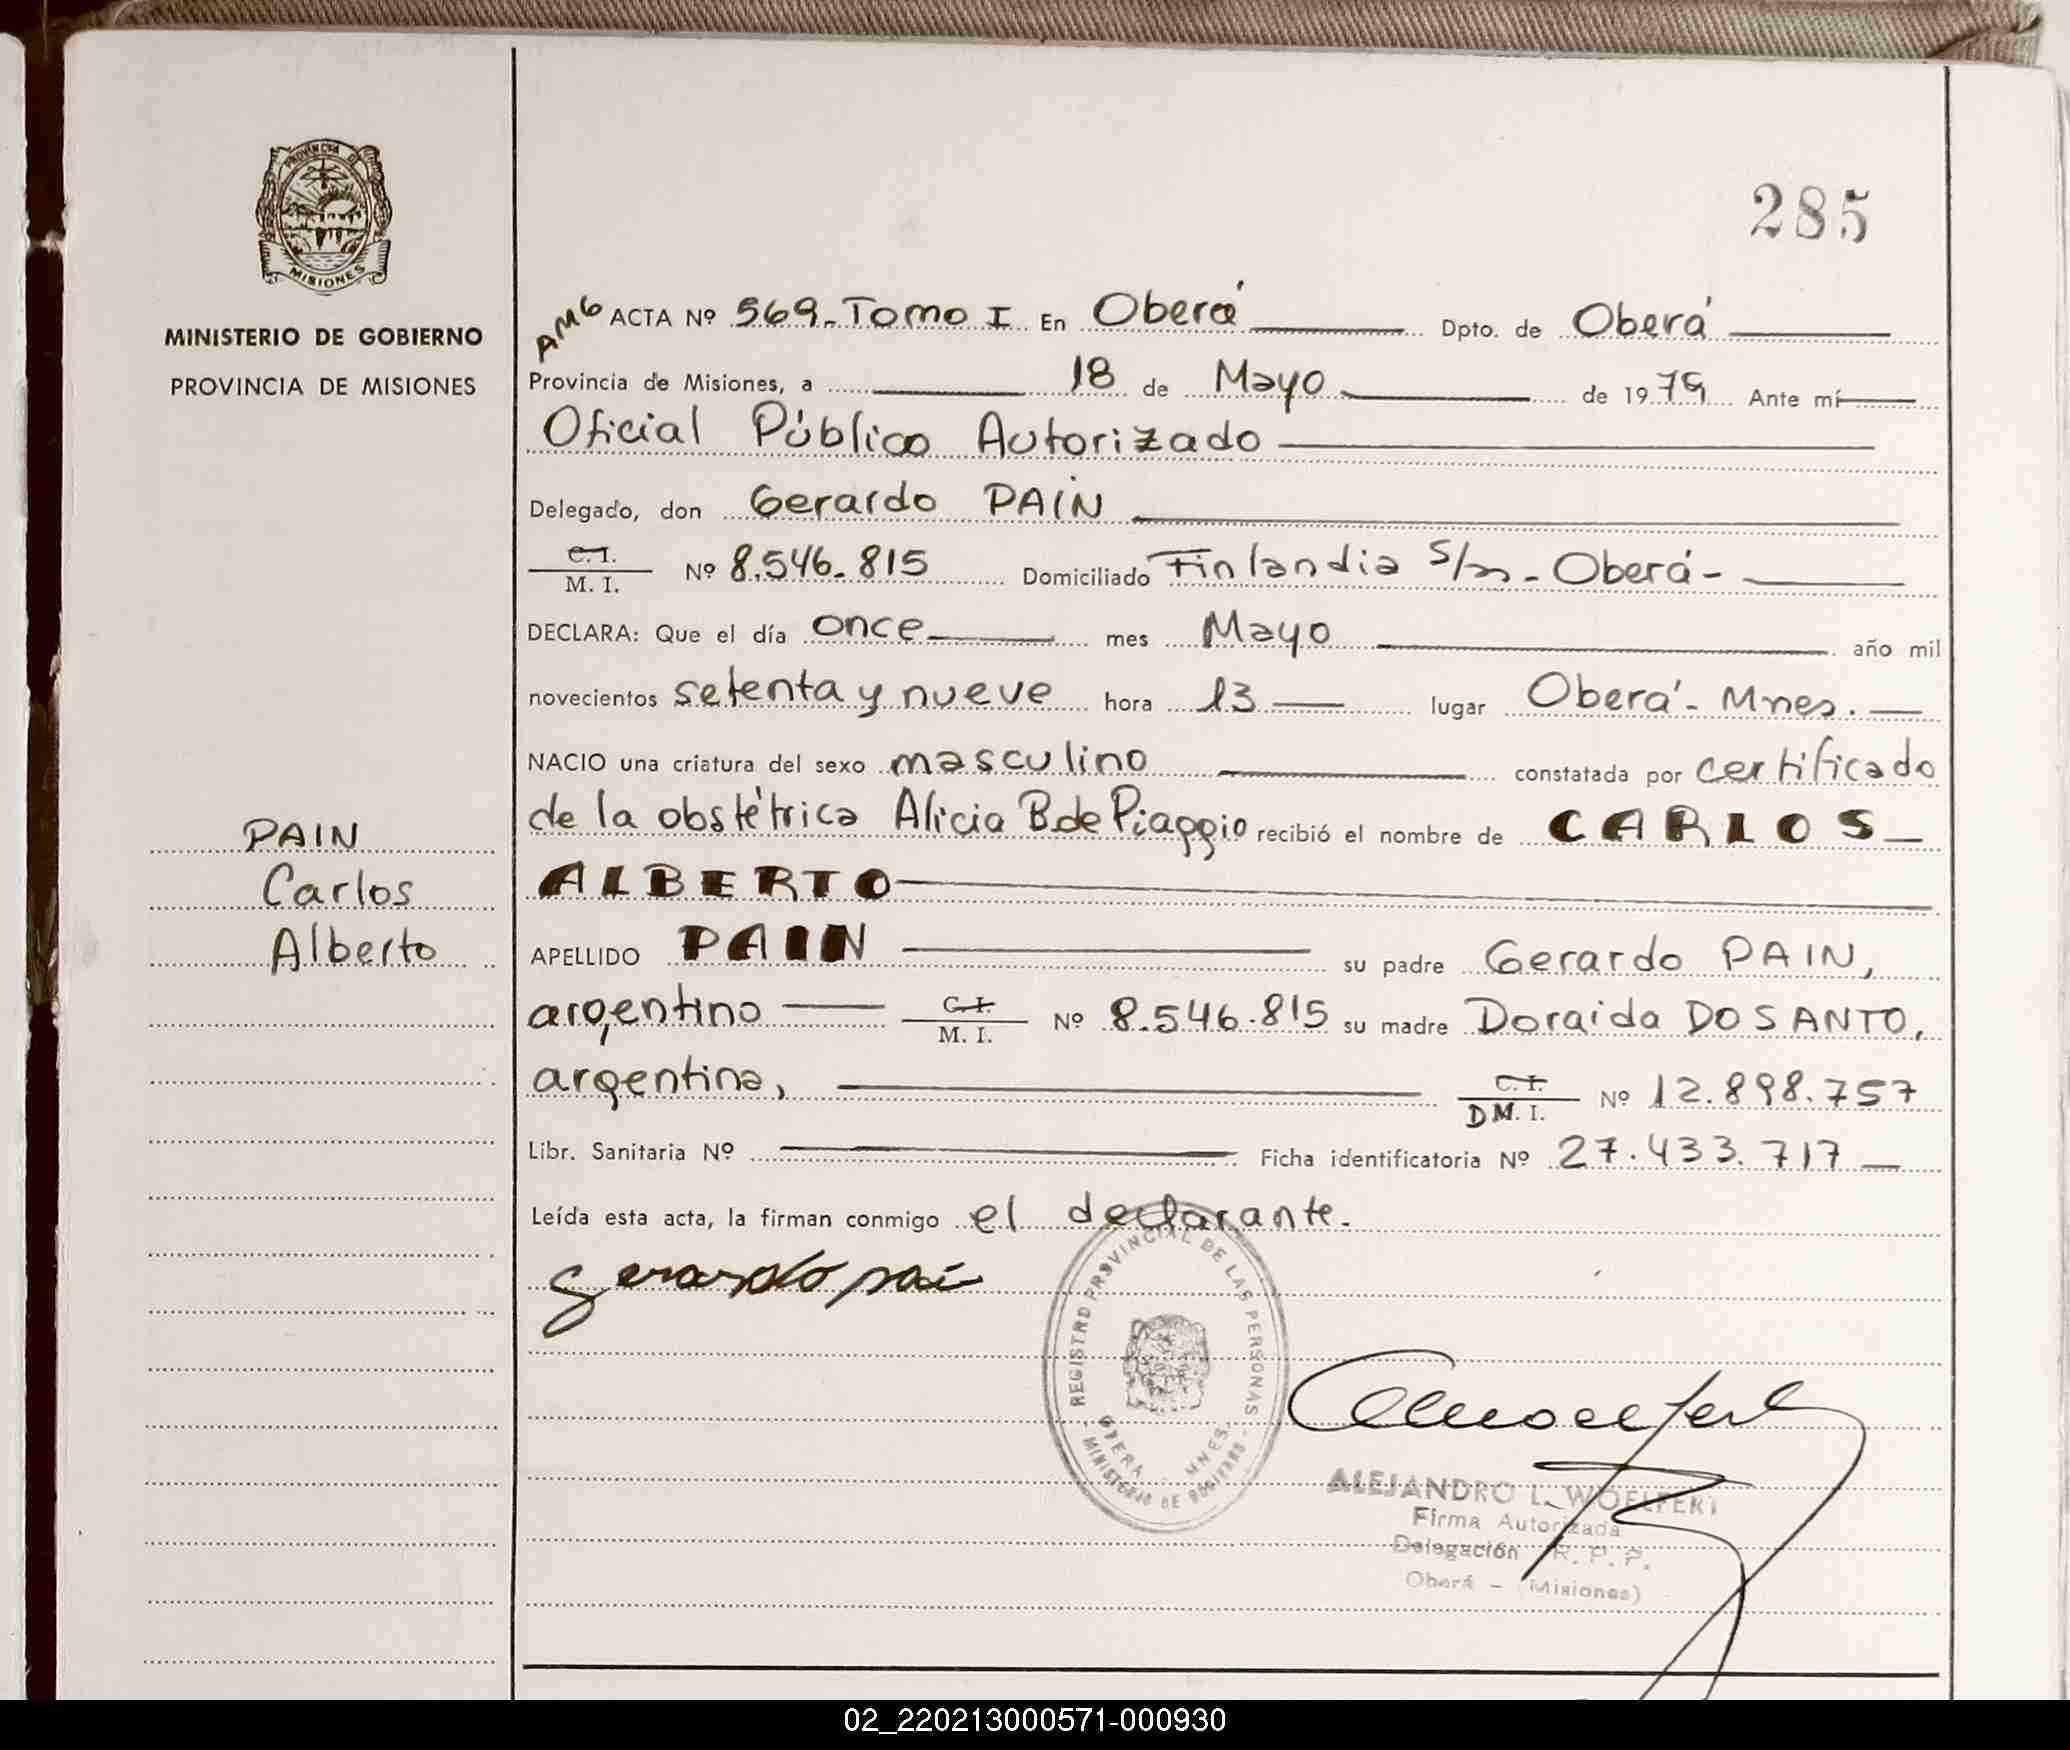 PROVINCIA DE
MISIONES
MINISTERIO DE GOBIERNO
PROVINCIA DE MISIONES
285
AMG ACTA Nº 569 - Tomo I En Oberá Dpto. de Oberá
Provincia de Misiones, a 18 de Mayo de 1979 Ante mí
Oficial Público Autorizado
Delegado, don Gerardo PAIN
C.I.
M. I. Nº 8.546.815 Domiciliado Finlandia S/n - Oberá -
DECLARA: Que el día once mes Mayo año mil
novecientos setenta y nueve hora 13 lugar Oberá - Mnes.
NACIO una criatura del sexo masculino constatada por certificado
de la obstétrica Alicia B. de Piaggio recibió el nombre de CARLOS
ALBERTO
PAIN
Carlos
Alberto
APELLIDO PAIN su padre Gerardo PAIN,
argentino C.I.
M. I. Nº 8.546.815 su madre Doraida DO SANTO,
argentina, C.I.
DM. I. Nº 12.898.757
Libr. Sanitaria Nº Ficha identificatoria Nº 27.433.717
Leída esta acta, la firman conmigo el declarante.
Gerardo pai
REGISTRO PROVINCIAL DE LAS PERSONAS
OBERA - MNES.
MINISTERIO DE GOBIERNO
ALEJANDRO L. WOELFERT
Firma Autorizada
Delegación R. P. P.
Oberá - (Misiones)
02_220213000571-000930